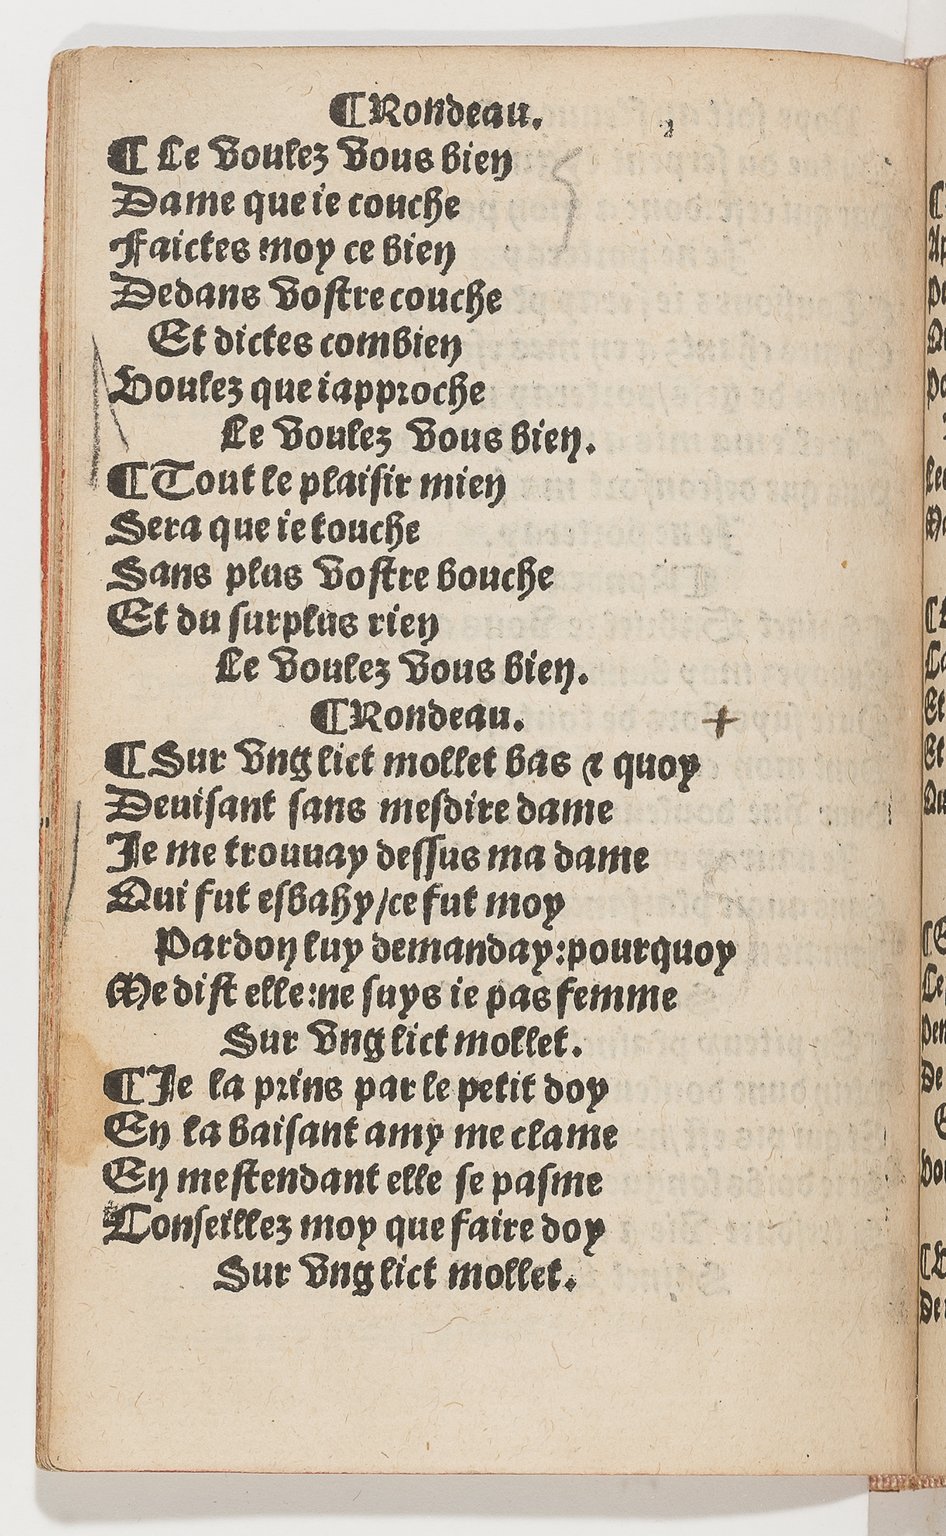 ¶Rondeau.
¶ Le voulez vous bien
Dame que ie couche
Faictes moy ce bien
Dedans vostre couche
Et dictes combien
Voulez que iapproche
Le voulez vous bien.
¶Tout le plaisir mien
Sera que ie touche
Sans plus vostre bouche
Et du surplus rien
Le voulez vous bien.
¶Rondeau.
¶Sur vng lict mollet bas & quoy
Deuisant sans mesdire dame
Je me trouuay dessus ma dame
Qui fut esbahy/ce fut moy
Pardon luy demanday:pourquoy
Me dist elle:ne suys ie pas femme
Sur vng lict mollet.
¶Je la prins par le petit doy
En la baisant amy me clame
En mestendant elle se pasme
Conseillez moy que faire doy
Sur vng lict mollet.